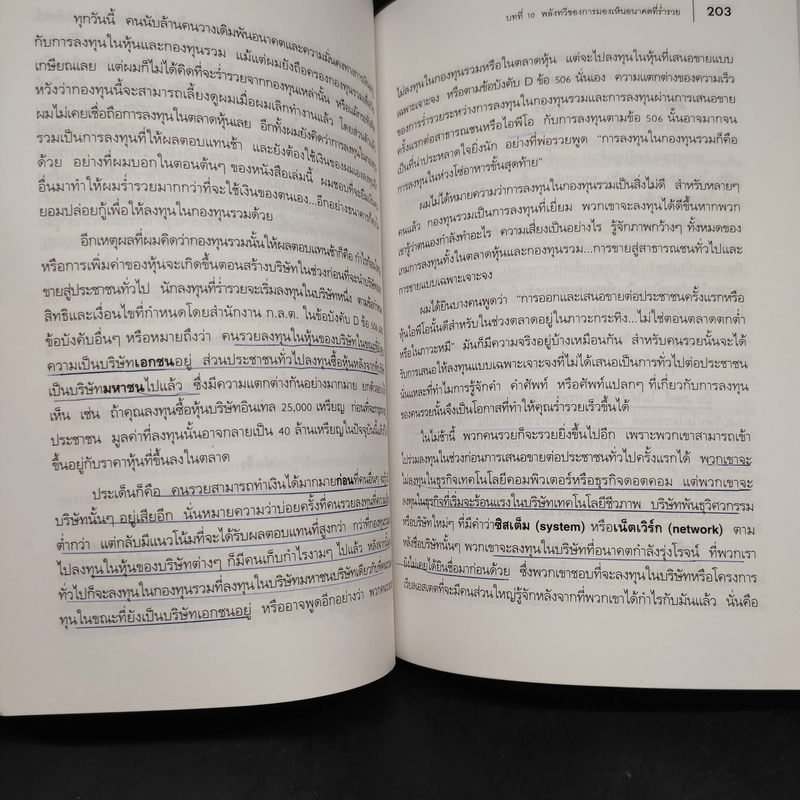 ทุกวันนี้ คนนับล้านคนวางเดิมพันอนาคตและความมั่นคงทางการเงินไว้
กับการลงทุนในหุ้นและกองทุนรวม แม้แต่ผมยังถือครองกองทุนรวมเพื่อวัย
เกษียณเลย แต่ผมก็ไม่ได้คิดที่จะร่ำรวยจากกองทุนเหล่านั้น หรือแม้กระทั่ง
หวังว่ากองทุนนี้จะสามารถเลี้ยงดูผมเมื่อผมเลิกทำงานแล้ว โดยส่วนตัวแล้ว
ผมไม่เคยเชื่อถือการลงทุนในตลาดหุ้นเลย อีกทั้งผมยังคิดว่าการลงทุนในกองทุน
รวมเป็นการลงทุนที่ให้ผลตอบแทนช้า และยังต้องใช้เงินของผมเองลงทุน
ด้วย อย่างที่ผมบอกในตอนต้นๆ ของหนังสือเล่มนี้ ผมชอบที่จะยืมเงินคน
อื่นมาทำให้ผมร่ำรวยมากกว่าที่จะใช้เงินของตนเอง...อีกอย่างธนาคารก็คงไม่
ยอมปล่อยกู้เพื่อให้ลงทุนในกองทุนรวมด้วย
อีกเหตุผลที่ผมคิดว่ากองทุนรวมนั้นให้ผลตอบแทนช้าก็คือ กำไร
หรือการเพิ่มค่าของหุ้นจะเกิดขึ้นตอนสร้างบริษัทในช่วงก่อนที่จะนำบริษัท
ขายสู่ประชาชนทั่วไป นักลงทุนที่ร่ำรวยจะเริ่มลงทุนในบริษัทหนึ่ง ตามข้อ
สิทธิและเงื่อนไขที่กำหนดโดยสำนักงาน ก.ล.ต. ในข้อบังคับ D ข้อ 506 และ
ข้อบังคับอื่นๆ หรือหมายถึงว่า คนรวยลงทุนในหุ้นของบริษัทในขณะที่ยัง
ความเป็นบริษัทเอกชนอยู่ ส่วนประชาชนทั่วไปลงทุนซื้อหุ้นหลังจากที่
เป็นบริษัทมหาชนไปแล้ว ซึ่งมีความแตกต่างกันอย่างมากมาย ยกตัวอย่าง
เห็น เช่น ถ้าคุณลงทุนซื้อหุ้นบริษัทอินเทล 25,000 เหรียญ ก่อนที่จะ
ประชาชน มูลค่าที่ลงทุนนั้นอาจกลายเป็น 40 ล้านเหรียญในปัจจุบันนี้
ขึ้นอยู่กับราคาหุ้นที่ขึ้นลงในตลาด
ประเด็นก็คือ คนรวยสามารถทำเงินได้มากมายก่อนที่คนอื่นๆ จะ
บริษัทนั้นๆ อยู่เสียอีก นั่นหมายความว่าบ่อยครั้งที่คนรวยลงทุนที่ความเสี่ยง
ต่ำกว่า แต่กลับมีแนวโน้มที่จะได้รับผลตอบแทนที่สูงกว่า กว่าที่กองทุน
ไปลงทุนในหุ้นของบริษัทต่างๆ ก็มีคนเก็บกำไรงามๆ ไปแล้ว หลังจากนั้น
ทั่วไปก็จะลงทุนในกองทุนรวมที่ลงทุนในบริษัทมหาชนบริษัทเดียวกับที่
ทุนในขณะที่ยังเป็นบริษัทเอกชนอยู่ หรืออาจพูดอีกอย่างว่า พวกคนรวย
บทที่ 10 พลังทวีของการมองเห็นอนาคตที่ร่ำรวย 203
ไม่ลงทุนในกองทุนรวมหรือในตลาดหุ้น แต่จะไปลงทุนในหุ้นที่เสนอขายแบบ
เฉพาะเจาะจง หรือตามข้อบังคับ D ข้อ 506 นั่นเอง ความแตกต่างของความเร็ว
ของการร่ำรวยระหว่างการลงทุนในกองทุนรวมและการลงทุนผ่านการเสนอขาย
ครั้งแรกต่อสาธารณชนหรือไอพีโอ กับการลงทุนตามข้อ 506 นั้นอาจมากจน
เป็นที่น่าประหลาดใจยิ่งนัก อย่างที่พ่อรวยพูด “การลงทุนในกองทุนรวมก็คือ
การลงทุนในห่วงโซ่อาหารชั้นสุดท้าย”
ผมไม่ได้หมายความว่าการลงทุนในกองทุนรวมเป็นสิ่งไม่ดี สำหรับหลายๆ
คนแล้ว กองทุนรวมเป็นการลงทุนที่เยี่ยม พวกเขาจะลงทุนได้ดีขึ้นหากพวก
เขารู้ว่าตนเองกำลังทำอะไร ความเสี่ยงเป็นอย่างไร รู้จักภาพกว้างๆ ทั้งหมดของ
เกมการลงทุนทั้งในตลาดหุ้นและกองทุนรวม...การขายสู่สาธารณชนทั่วไปและ
การขายแบบเฉพาะเจาะจง
ผมได้ยินบางคนพูดว่า “การออกและเสนอขายต่อประชาชนครั้งแรกหรือ
หุ้นไอพีโอนั้นดีสำหรับในช่วงตลาดอยู่ในภาวะกระทิง...ไม่ใช่ตอนตลาดตกต่ำ
หรือในภาวะหมี” มันก็มีความจริงอยู่บ้างเหมือนกัน สำหรับคนรวยนั้นจะได้
รับการเสนอให้ลงทุนแบบเฉพาะเจาะจงที่ไม่ได้เสนอเป็นการทั่วไปต่อประชาชน
นั่นแหละที่ทำไมการรู้จักคำ คำศัพท์ หรือศัพท์แปลกๆ ที่เกี่ยวกับการลงทุน
ของคนรวยนั้นจึงเป็นโอกาสที่ทำให้คุณร่ำรวยเร็วขึ้นได้
ในไม่ช้านี้ พวกคนรวยก็จะรวยยิ่งขึ้นไปอีก เพราะพวกเขาสามารถเข้า
ไปร่วมลงทุนในช่วงก่อนการเสนอขายต่อประชาชนทั่วไปครั้งแรกได้ พวกเขาจะ
ไม่ลงทุนในธุรกิจเทคโนโลยีคอมพิวเตอร์หรือธุรกิจดอตคอม แต่พวกเขาจะ
ลงทุนในธุรกิจที่เริ่มจะร้อนแรงในบริษัทเทคโนโลยีชีวภาพ บริษัทพันธุวิศวกรรม
หรือบริษัทใหม่ๆ ที่มีคำว่าซิสเต็ม (system) หรือเน็ตเวิร์ก (network) ตาม
หลังชื่อบริษัทนั้นๆ พวกเขาจะลงทุนในบริษัทที่อนาคตกำลังรุ่งโรจน์ ที่พวกเรา
ยังไม่เคยได้ยินชื่อมาก่อนด้วย ซึ่งพวกเขาชอบที่จะลงทุนในบริษัทหรือโครงการ
เรียลเอสเตตที่จะมีคนส่วนใหญ่รู้จักหลังจากที่พวกเขาได้กำไรกับมันแล้ว นั่นคือ